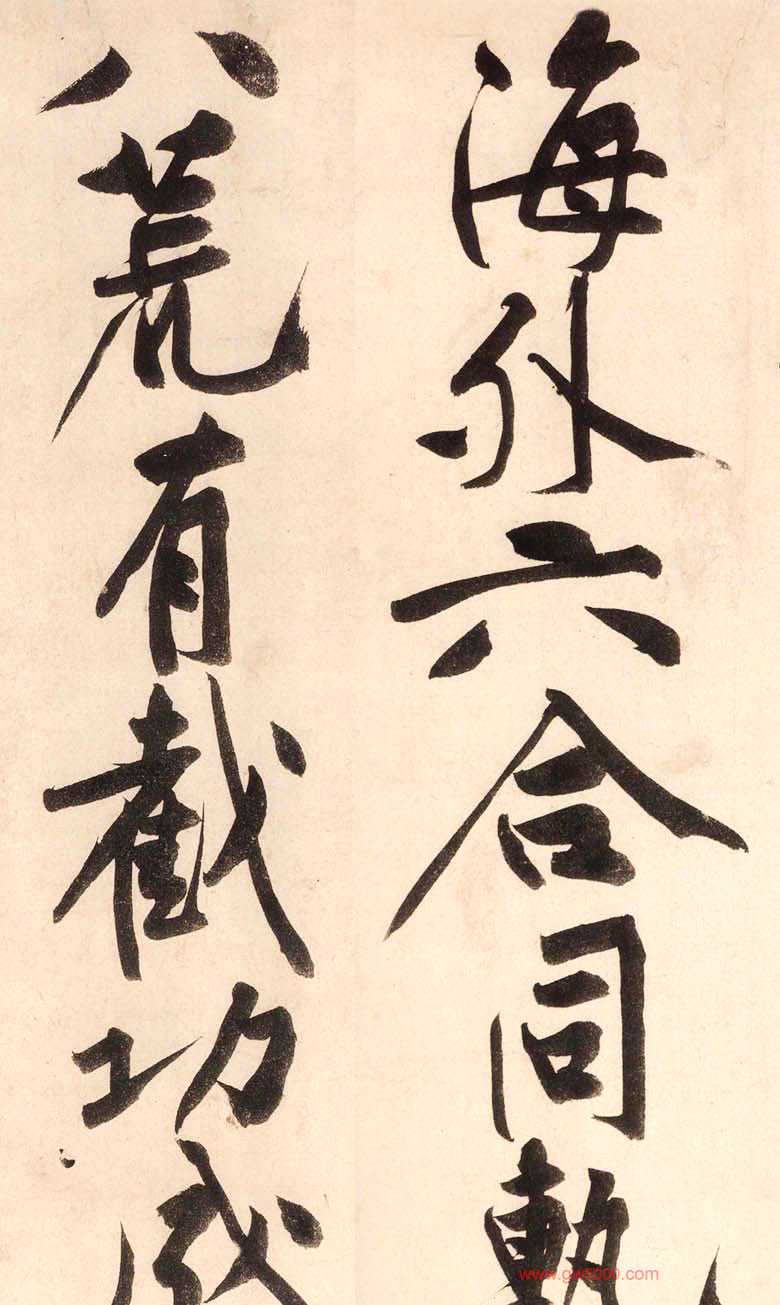 海外六合同軌
八荒有截功成
www.gw5000.com